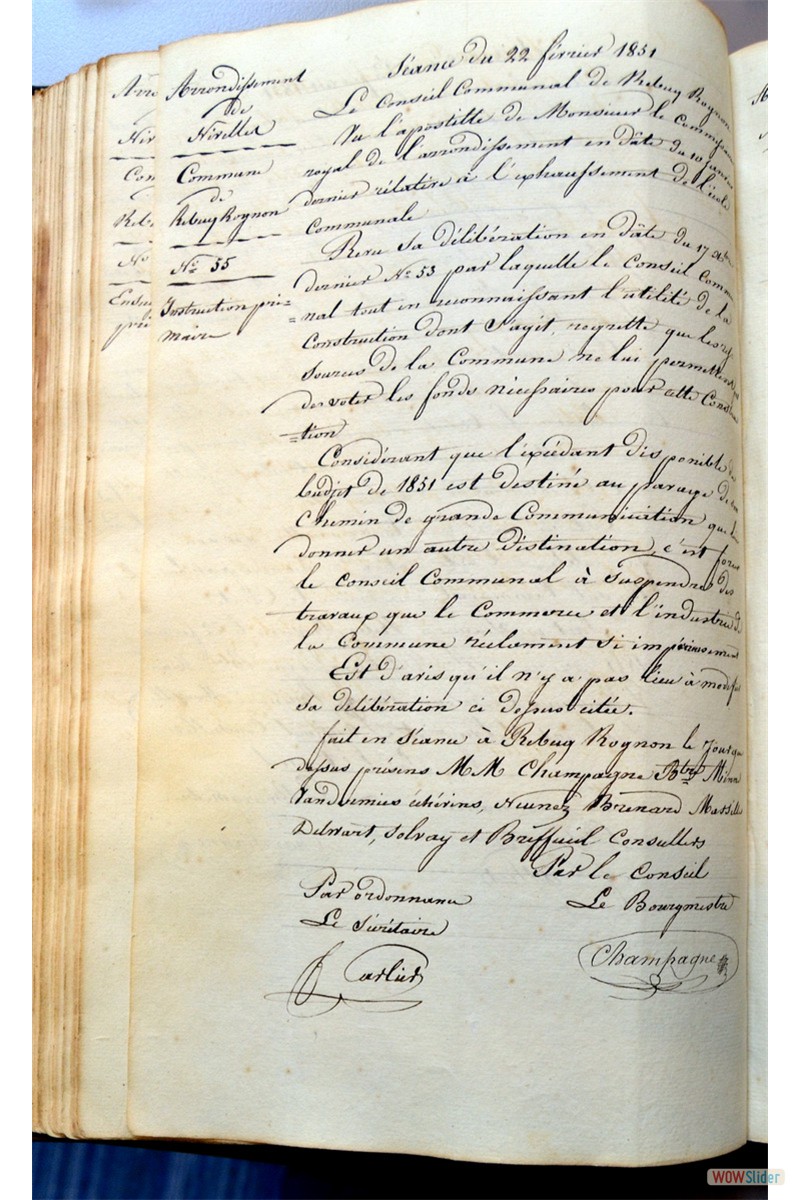 Séance du 22 février 1851
Arrondissement
de
Nivelles
Commune
de
Rebecq Rognon
N° 55
Instruction pri-
maire
Le Conseil Communal de Rebecq Rognon
Vu l'apostille de Monsieur le Commissaire
royal de l'arrondissement en dâte du 10 Janvier
dernier rélative à l'exhaussement de l'école
Communale
Revu sa délibération en dâte du 17 Xbre
dernier N° 53 par laquelle le Conseil Commu
=nal tout en reconnaissant l'utilité de la
Construction dont s'agit, regrette que les res
sources de la Commune ne lui permettent pas
de voter les fonds nécessaires pour cette Construc
=tion
Considérant que l'excédant disponible du
budjet de 1851 est destiné au pavage de
Chemin de grande Communication que lui
donner un autre destination, c'est forcer
le Conseil Communal à suspendre des
travaux que le Commerce et l'industrie de
la Commune réclament si impérieusement
Est d'avis qu'il n'y a pas lieu à modifier
sa délibération ci dessus citée.
fait en Séance à Rebecq Rognon le Jour que
dessus présens MM Champagne Btre Minne
Vandormies échévins, Brenard
Delwart, Solvay et Conseillers
Par le Conseil
Par ordonnance
Le Bourgmestre
Le Sécrétaire
Champagne
Carlier
WOWSlider